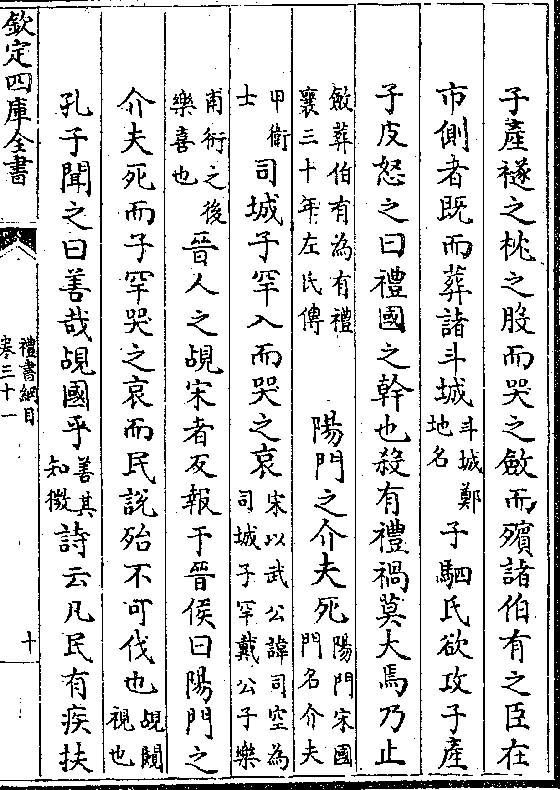 子產襚之枕之股而哭之斂而殯諸伯有之臣在
市側者既而葬諸斗城斗城鄭地名子駟氏欲攻子產
子皮怒之曰禮國之幹也殺有禮禍莫大焉乃止
斂葬伯有為有禮襄三十年左氏傳 陽門之介夫死陽門宋國門名介夫
甲衛士司城子罕入而哭之哀宋以武公諱司空為司城子罕戴公子樂
甫衎之後樂喜也晉人之覘宋者反報于晉侯曰陽門之
介夫死而子罕哭之哀而民說殆不可伐也覘闚視也
孔子聞之曰善哉覘國乎善其知微詩云凡民有疾扶
欽定四庫全書
禮書綱目
卷三十一
十